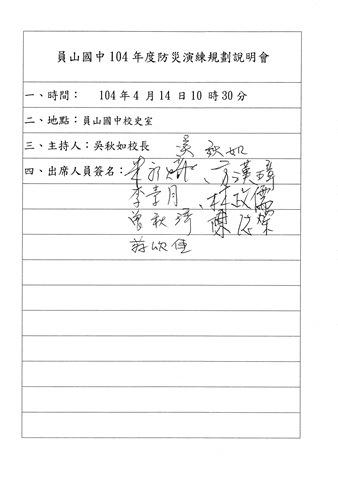 員山國中 104 年度防災演練規劃說明會
一、時間： 104 年 4 月 14 日 10 時 30 分
二、地點：員山國中校史室
三、主持人：吳秋如校長 吳秋如
四、出席人員簽名： 漢璋
李 月 林政儒
曾秋琦 陳
蔣欣